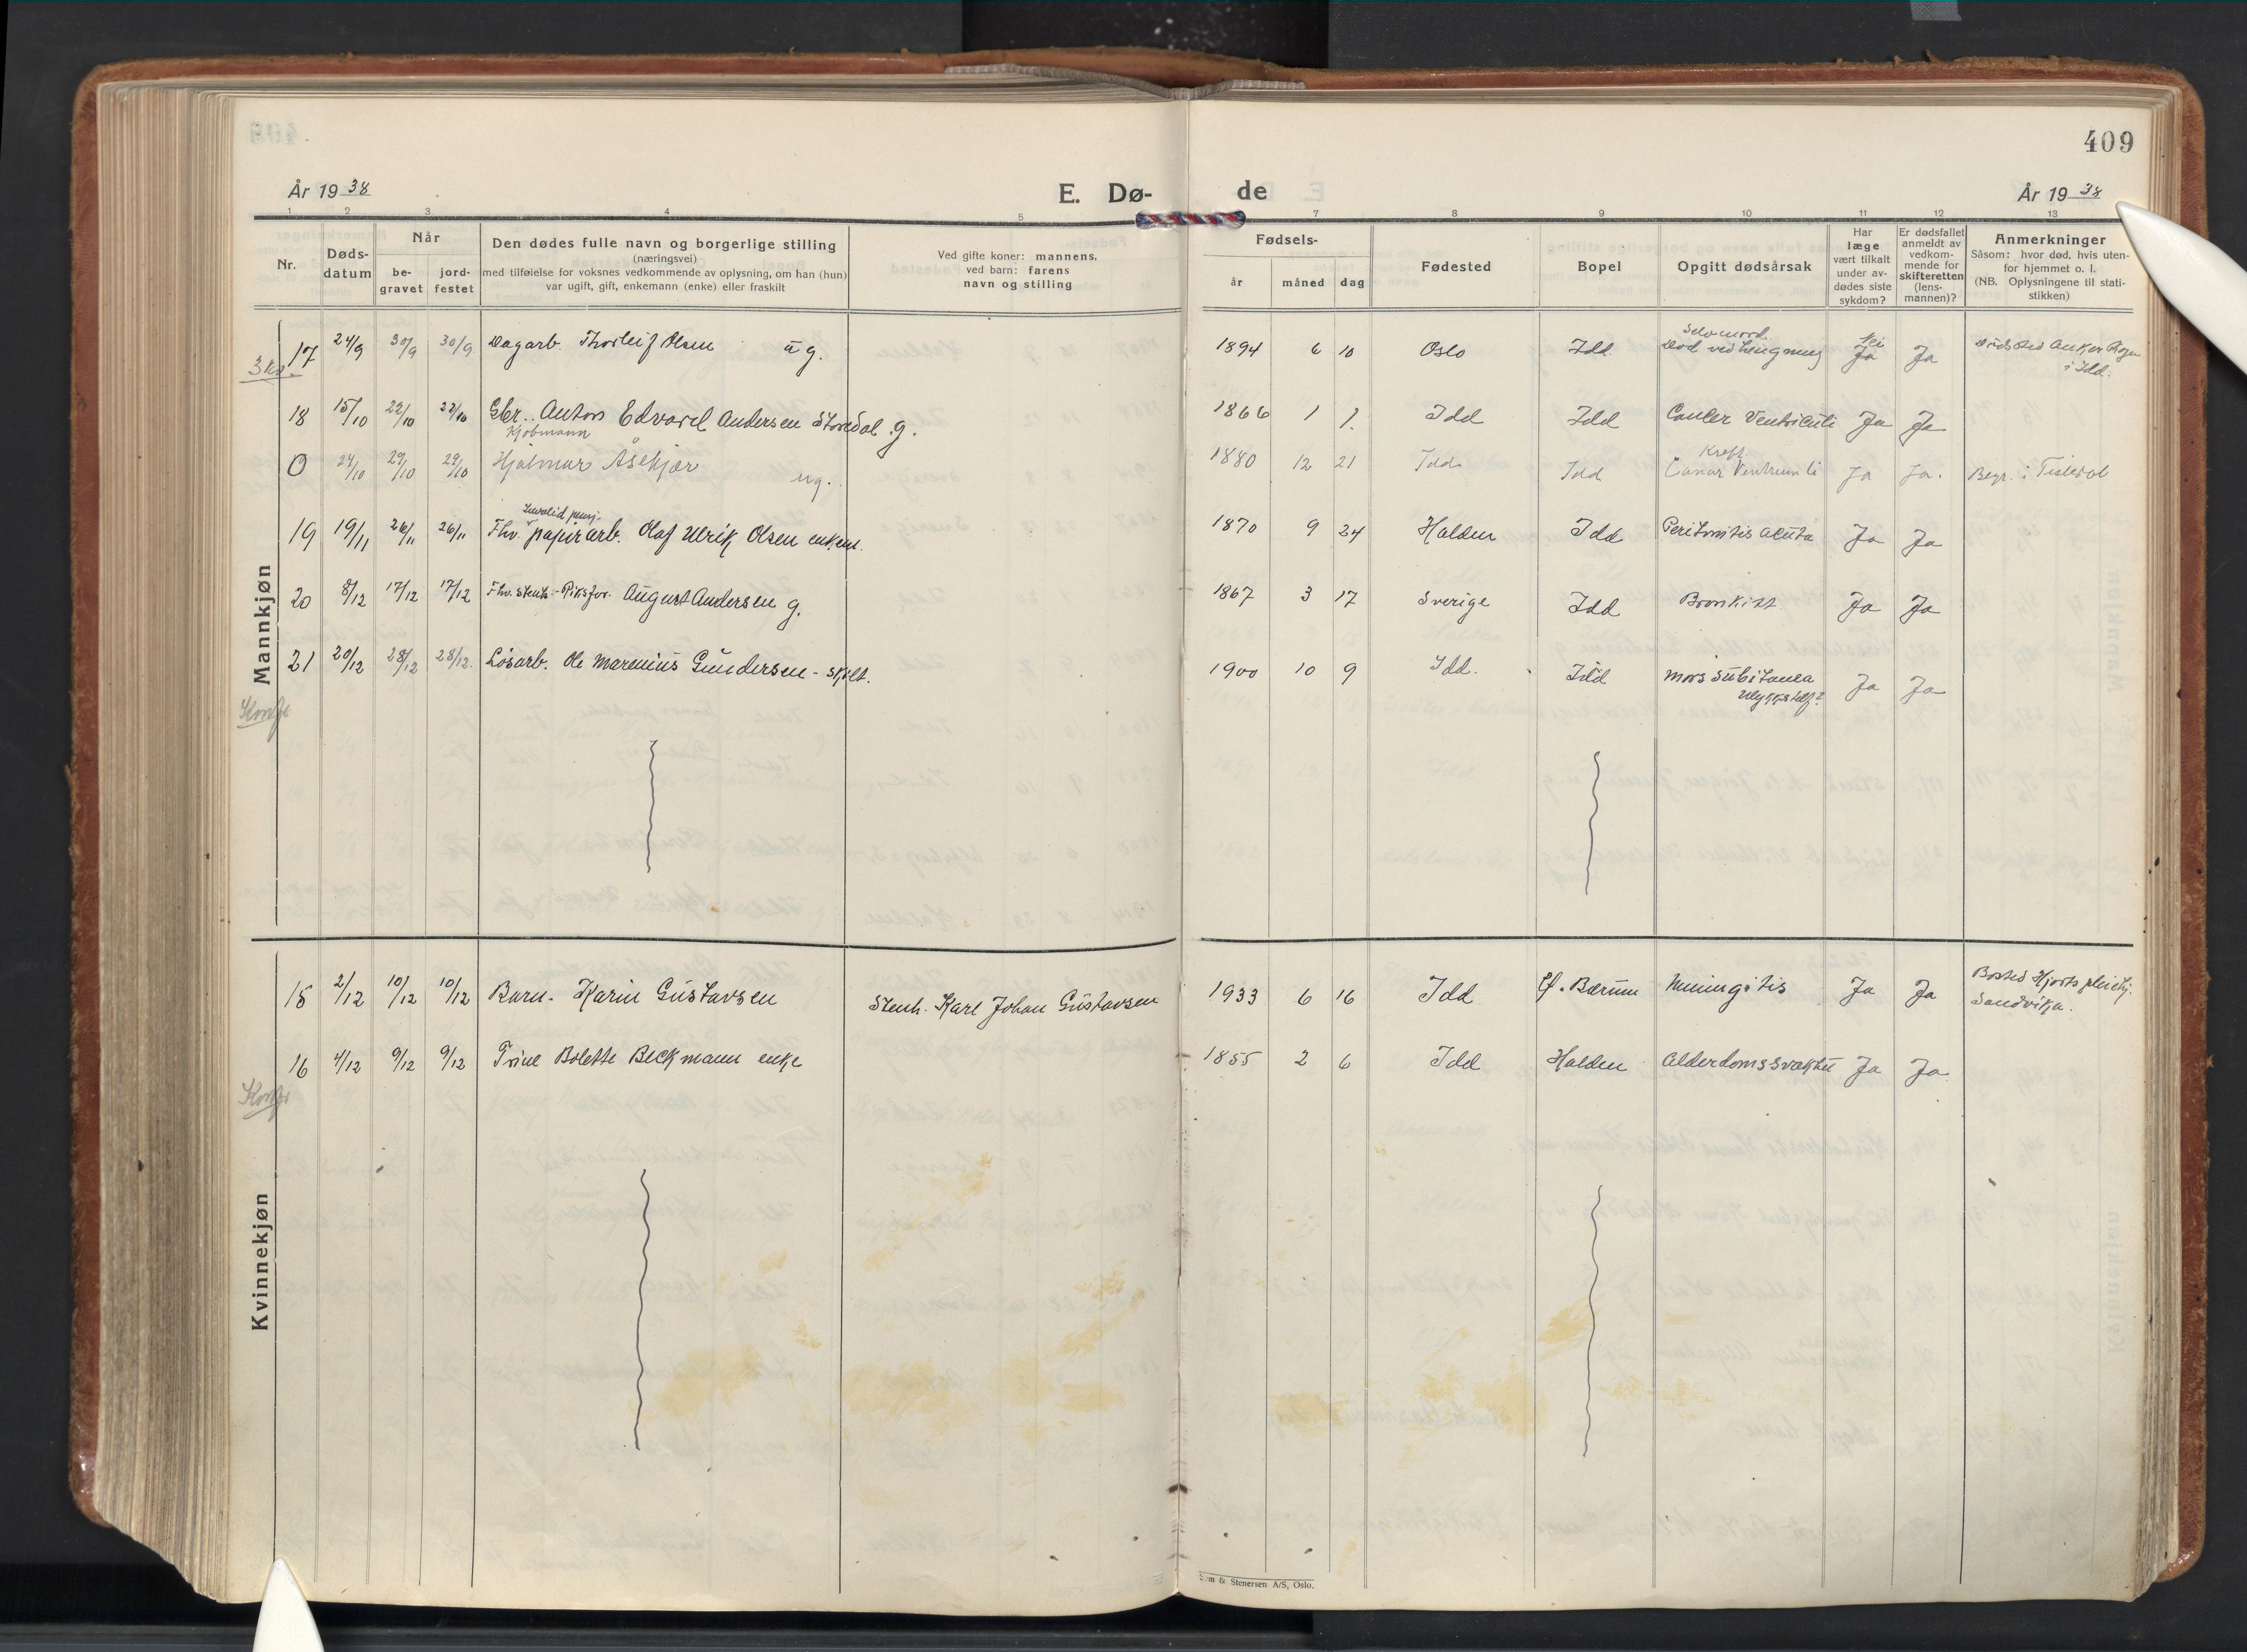 409
År 19 38
E. Dø-
de
År 19 38
1 2 3 4 5 7 8 9 10 11 12 13
Nr.
Døds-
datum
Når
be-
gravet
jord-
festet
Den dødes fulle navn og borgerlige stilling
(næringsvei)
med tilføielse for voksnes vedkommende av oplysning, om han (hun)
var ugift, gift, enkemann (enke) eller fraskilt
Ved gifte koner: mannens,
ved barn: farens
navn og stilling
Fødsels-
år måned dag
Fødested
Bopel
Opgitt dødsårsak
Har
læge
vært tilkalt
under av-
dødes siste
sykdom?
Er dødsfallet
anmeldt av
vedkom-
mende for
skifteretten
(lens-
mannen)?
Anmerkninger
Såsom: hvor død, hvis uten-
for hjemmet o. l.
(NB. Oplysningene til stati-
stikken)
Mannkjøn
Selvmord
17 24/9 30/9 30/9 Dagarb. Thorleif Olsen ug. 1894 6 10 Oslo Idd Død ved hengning Ja Ja Dødssted Anker
i Idd.
18 15/10 22/10 22/10 Gbr. Anton Edvard Andersen Storedal g. 1866 1 1. Idd Idd Cancer Ventriculi Ja Ja
Kjøbmann
Kreft
0 24/10 29/10 29/10 Hjalmar Åsekjær ug. 1880 12 21 Idd Idd Ventrumli Ja Ja. Begr. i Tistedal
Invalid pensj.
19 19/11 26/11 26/11 Fhv. papirarb. Olaf Ulrik Olsen enkem. 1870 9 24 Halden Idd Peritonitis acuta Ja Ja
20 8/12 17/12 17/12 Fhv. stenh. August Andersen g. 1867 3 17 Sverige Idd Bronkitt Ja Ja
21 20/12 28/12 28/12. Løsarb. Ole Marenius Gundersen - skilt. 1900 10 9 Idd. Idd Mors subitanea Ja Ja
Ulykkestilf?
Kvinnekjøn
15 2/12 10/12 10/12 Barn. Karin Gustavsen Stenh. Karl Johan Gustavsen 1933 6 16 Idd Ø. Bærum Meningitis Ja Ja Bosted Hjorts pleiehj.
Sandvika.
16 4/12 9/12 9/12 Trine Bolette Beckmann enke 1855 2 6 Idd Halden Alderdomssvakhet Ja Ja
& Stenersen A/S, Oslo.